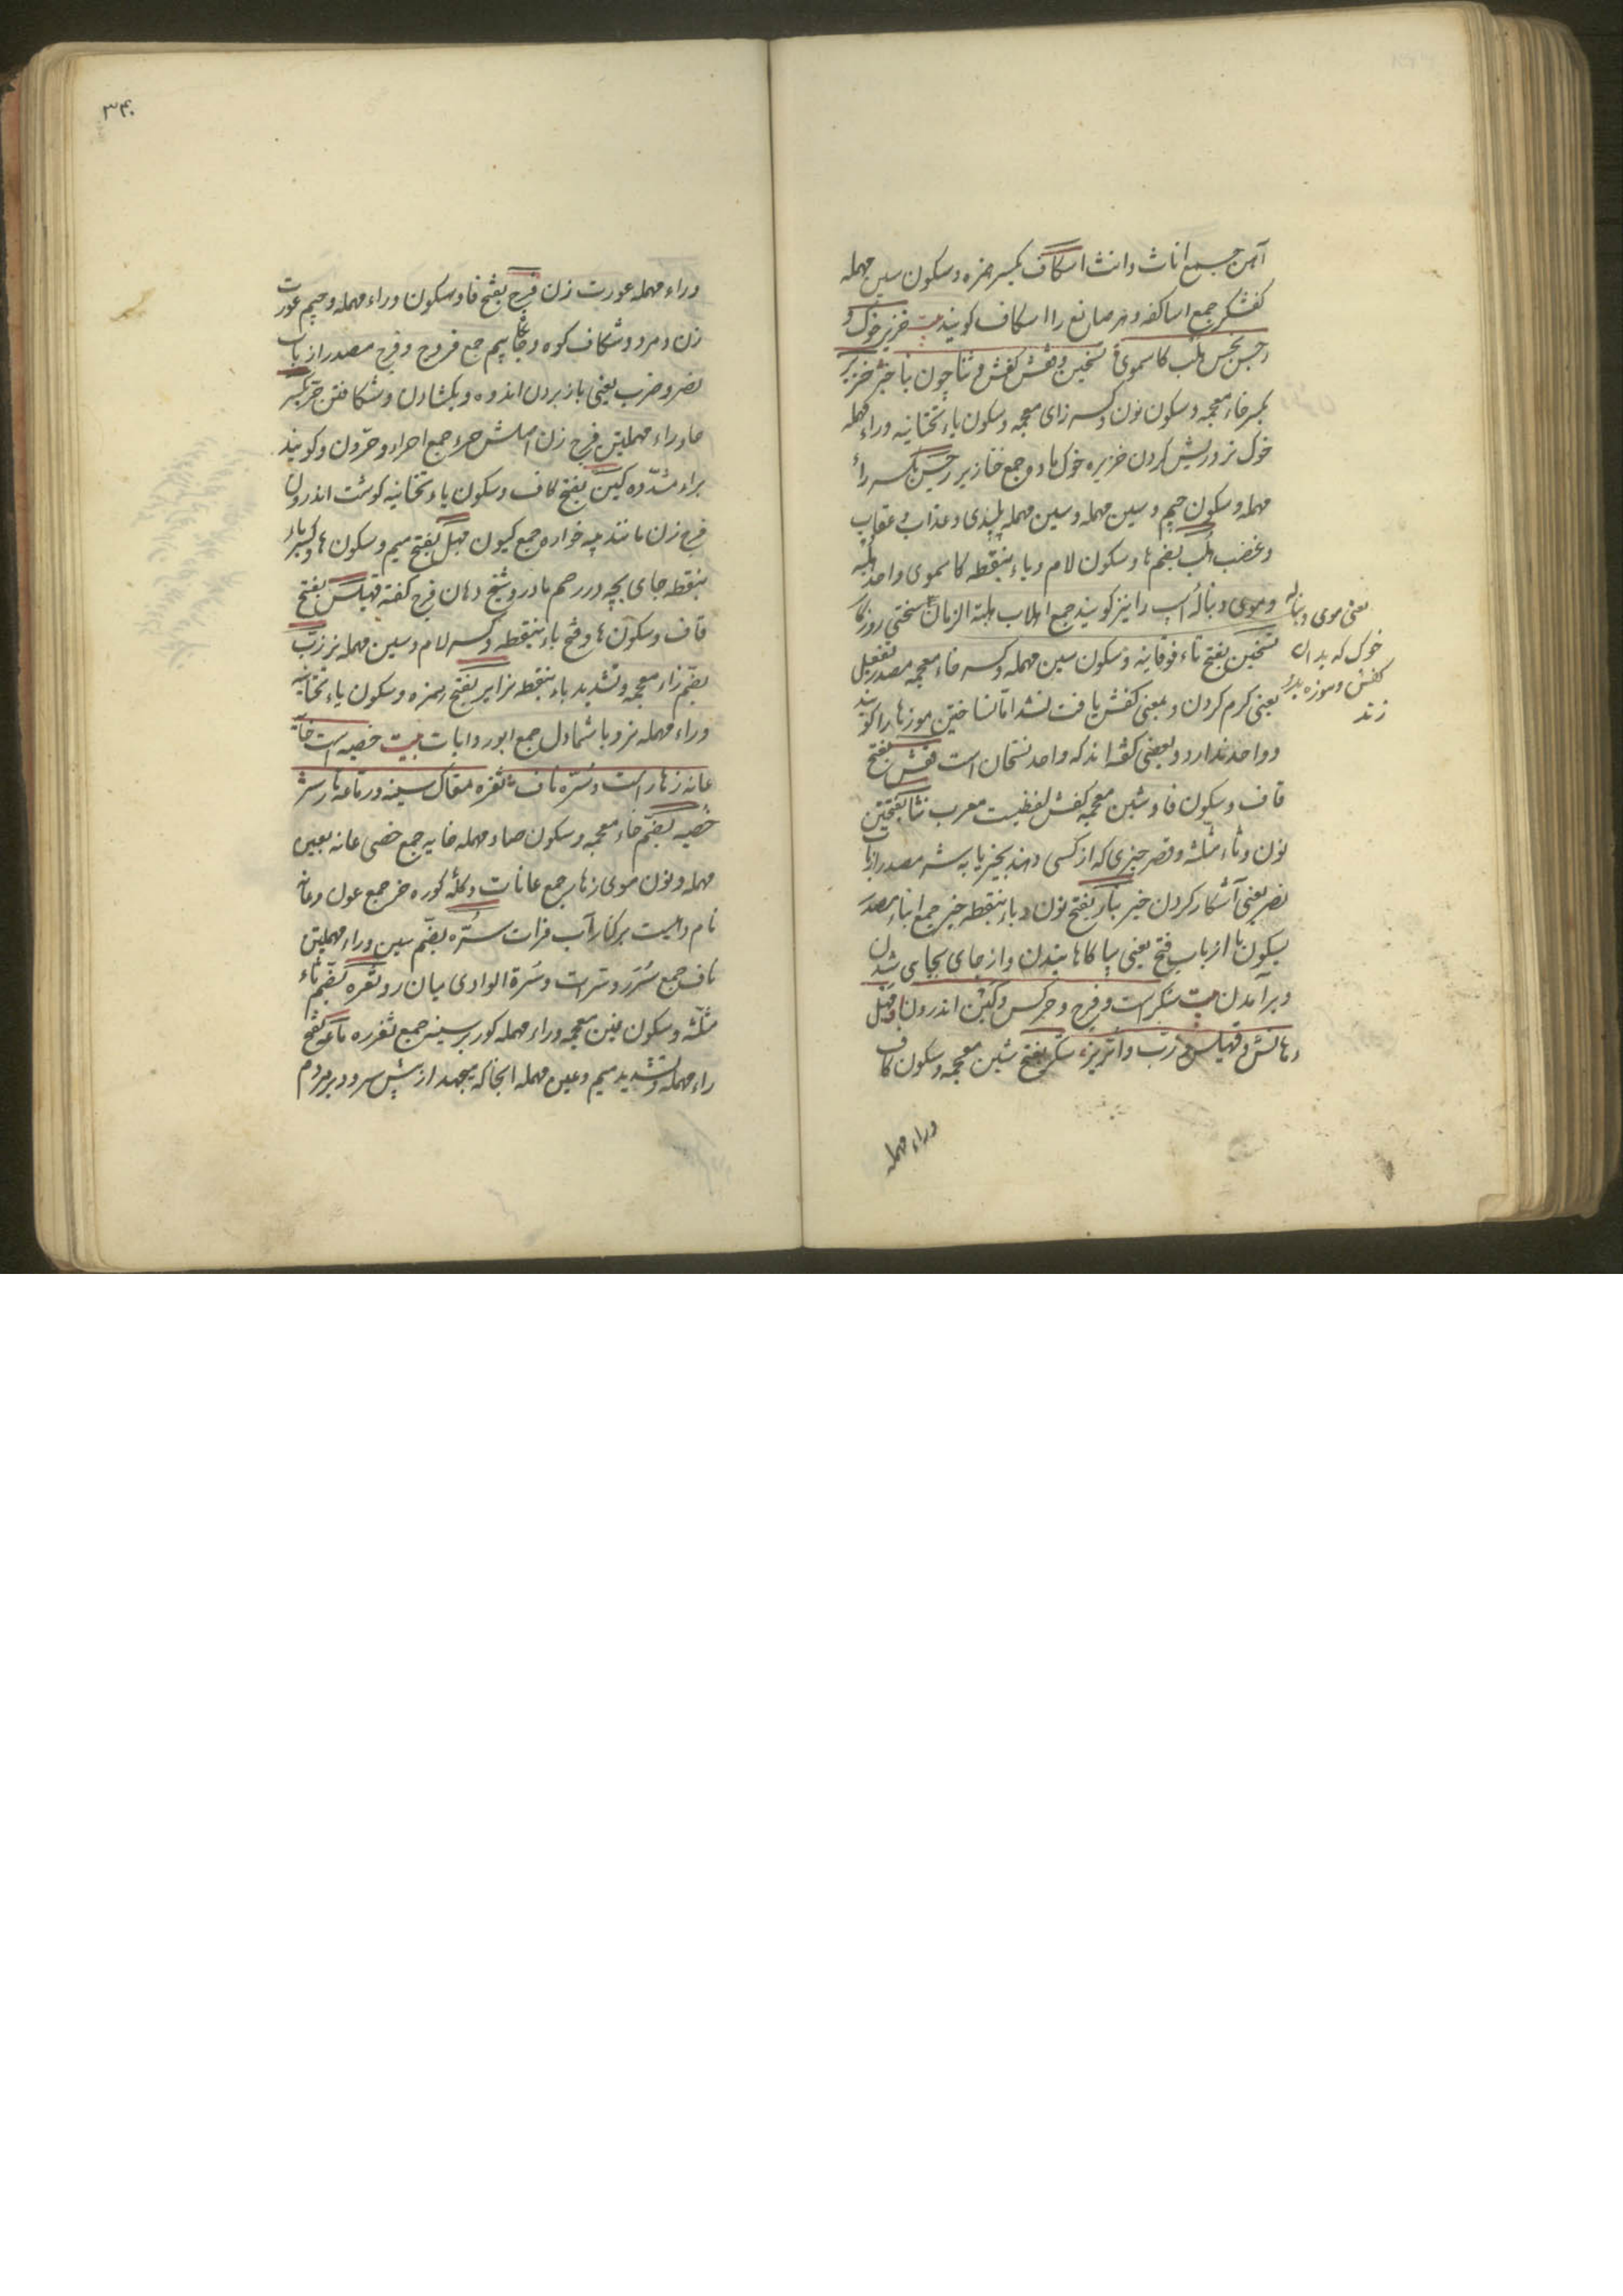 آهن جمع اناث وانث اسکاف بکسر همزه و سکون سین مهمله
کفشکر جمع اساکفه و هر صانع را اسکاف کویند بیت خنزیر خوک و
رجس نجس هلب کاسموی و تسخین و قفش کفش و نثا چون نبا خبر خنزیر
بکسر خاء معجمه و سکون نون و کسر زای معجمه و سکون یاء تحتانیه وراء مهمله
خوک نر و ریش کردن خنزیره خوک ماده جمع خنازیر رجس بکسر راء
مهمله و سکون جیم و سین مهمله و سین مهمله پلیدی و عذاب و عقاب
و غضب هلب بضم ها و سکون لام و باء بنقطه کاسموی واحد هلبه
و موی دنبالۀ اسپ را نیز کویند جمع اهلاب هلبة الزمان سختی روزکار
تسخین بفتح تاء فوقانیه و سکون سین مهمله و کسر خاء معجمه مصدر تفعیل
یعنی کرم کردن و بمعنی کفش یافت نشد اما تساخین موزها را کویند
و واحد ندارد و بعضی کفته اند که واحد تسخان است قفش بفتح
قاف و سکون فا و شین معجمه کفش لفظیست معرب نثا بفتحتین
نون و ثاء مثلثه و قصر چیزی که از کسی دهند بخیر یا به شر مصدر از باب
نصر یعنی آشکار کردن خبر نبا بفتح نون و باء بنقطه خبر جمع انباء مصدر
بسکون با از باب فتح یعنی بیاکاهانیدن و از جای بجای شدن
و برآمدن بیت شکر است و فرج و حر کس و کین اندرون و مهبل
دهانش و قهبلس و زب و ایر نر شکر بفتح شین معجمه و سکون کاف
وراء مهمله
یعنی موی دنبالۀ
خوک که بدان
کفش و موزه بدر
زند
۳۴۰
وراء مهمله عورت زن فرج بفتح فا و سکون وراء مهمله و جیم عورت
زن و مرد و شکاف کوه و جای بیم جمع فروج و فرج مصدر از باب
نصر و ضرب یعنی باز بردن اندوه و بکشادن و شکافتن حر بکسر
حا وراء مهملتین فرج زن اصلش حرح جمع احراح و حرون و کویند
براء مشدده کین بفتح کاف و سکون یاء تحتانیه کوشت اندرون
فرج زن مانند په خواره جمع کیون مهبل بفتح میم و سکون ها و کسر باء
بنقطه جای بچه در رحم مادر و شیخ دهان فرج کفته قهبلس بفتح
قاف و سکون ها و فتح باء بنقطه و کسر لام و سین مهمله نر زب
بضم زاء معجمه و تشدید باء بنقطه نر ایر بفتح همزه و سکون یاء تحتانیه
وراء مهمله نر و باد شمال جمع ابور و ابات بیت خصیه است خایه
عانه زهار است و سره ناف ثغره مغاک سینه و رماعه تارسر
خصیه بضم خاء معجمه و سکون صاد مهمله خایه جمع خصی عانه بعین
مهمله و نون موی زهار جمع عانات و کلۀ کوره خر جمع عون و عانه
نام دهیست برکنار آب فرات سره بضم سین وراء مهملتین
ناف جمع سرر و سرات و سرة الوادی میان رود ثغره بضم ثاء
مثلثه و سکون غین معجمه وراء مهمله کو بر سینه جمع ثغر رماعه بفتح
راء مهمله و تشدید میم و عین مهمله انجا که میجهد از پیش سر و در بر مردم